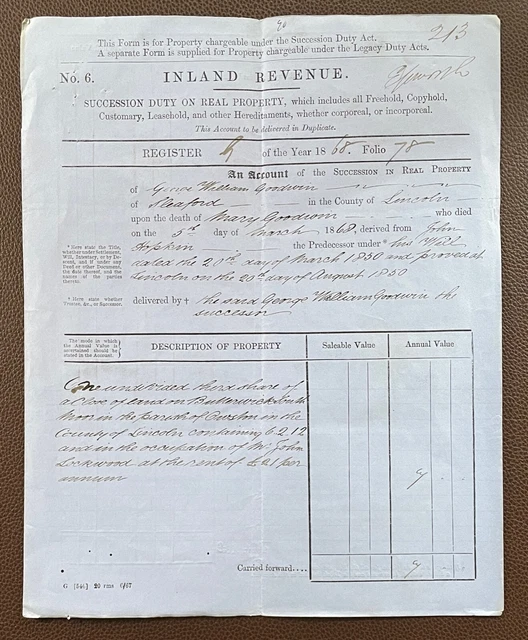 96
This Form is for Property chargeable under the Succession Duty Act.
A separate Form is supplied for Property chargeable under the Legacy Duty Acts.
213
No. 6.
INLAND REVENUE.
Epworth
SUCCESSION DUTY ON REAL PROPERTY, which includes all Freehold, Copyhold,
Customary, Leasehold, and other Hereditaments, whether corporeal, or incorporeal.
This Account to be delivered in Duplicate.
REGISTER of the Year 1868. Folio 78
An Account of the SUCCESSION IN REAL PROPERTY
of George William Goodwin
of Sleaford in the County of Lincoln
upon the death of Mary Goodwin who died
on the 5th day of March 1868, derived from John
the Predecessor under * his Will
* Here state the Title,
whether under Settlement,
Will, Intestacy, or by Descend, and if under any
Deed or other Document,
the date thereof, and the
names of the parties
thereto.
dated the 20th day of March 1850 and proved at
Lincoln on the 20th day of August 1850
* Here state whether
Trustee, &c., or Successor.
delivered by † the said George William Goodwin the
successor
The mode in which
the Annual Value is
ascertained should be
stated in the Account.
DESCRIPTION OF PROPERTY
Saleable Value
Annual Value
One undivided third share of
a Close of land on Butterwick South
Moor in the parish of Owston in the
County of Lincoln containing 6. 2. 12
and in the occupation of Mr John
Lockwood at the rent of £21 per
annum
7
Carried forward....
7
G [546] 20 rms 6/67